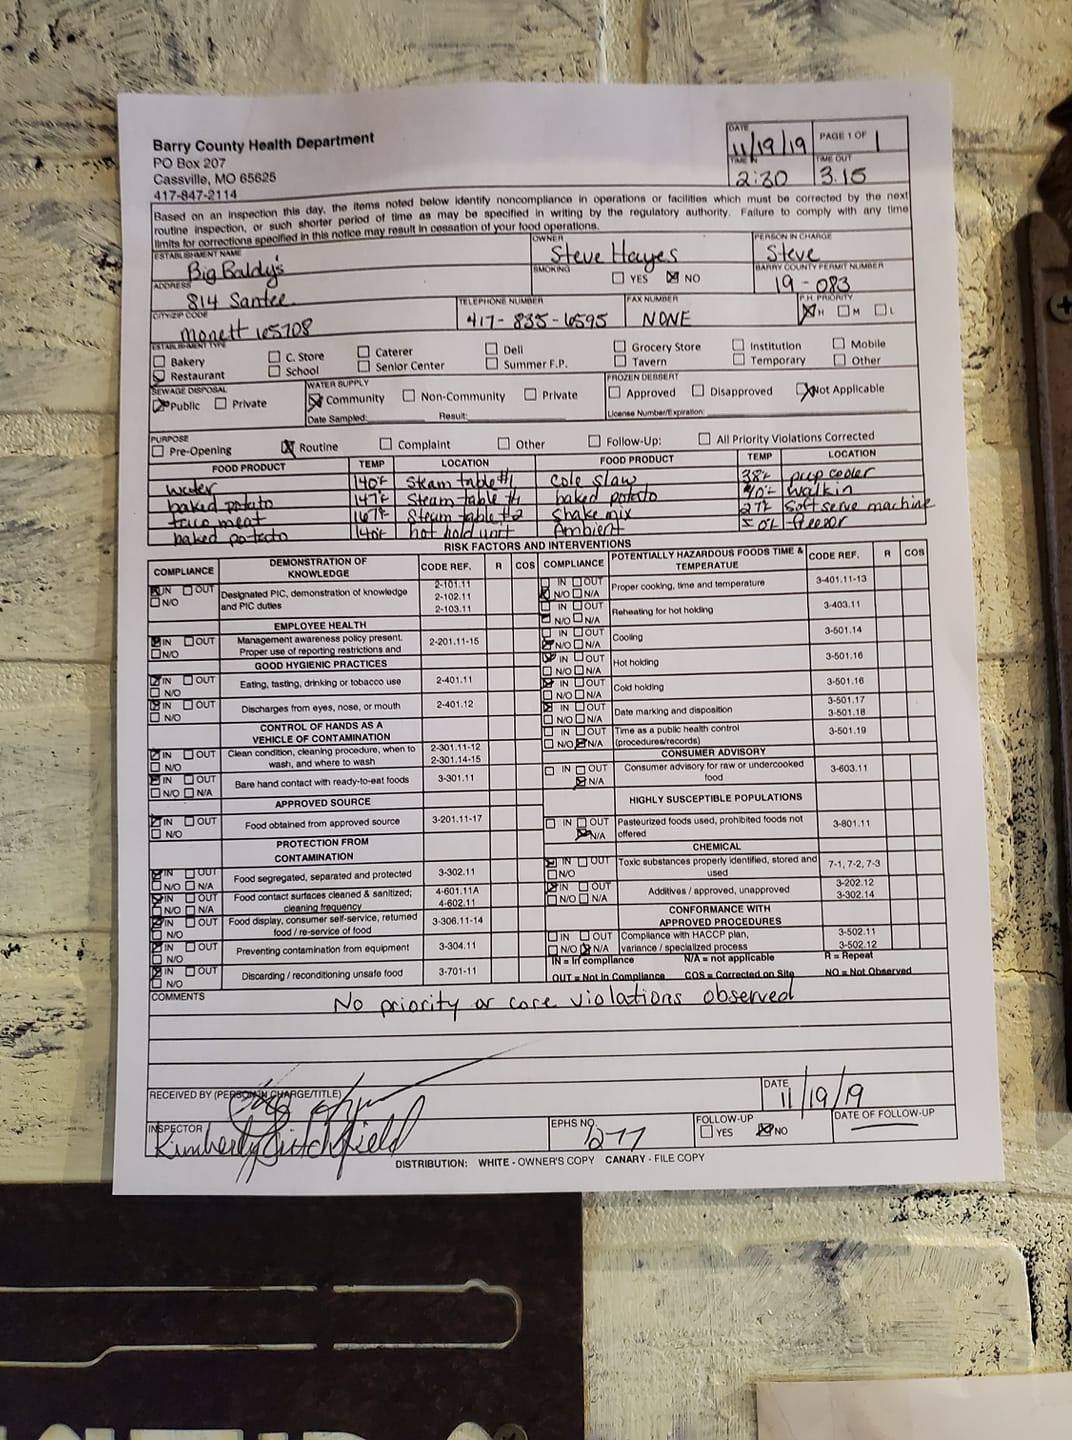 Barry County Health Department
PO Box 207
Cassville, MO 65625
417-847-2114
DATE 11/19/19 PAGE 1 OF 1
TIME IN 2:30 TIME OUT 3:15
Based on an inspection this day, the items noted below identify noncompliance in operations or facilities which must be corrected by the next
routine inspection, or such shorter period of time as may be specified in writing by the regulatory authority. Failure to comply with any time
limits for corrections specified in this notice may result in cessation of your food operations.
ESTABLISHMENT NAME Big Baldy's OWNER Steve Hayes PERSON IN CHARGE Steve
ADDRESS 814 Santee SMOKING YES NO BARRY COUNTY PERMIT NUMBER 19-083
CITY/ZIP CODE Monett 65708 TELEPHONE NUMBER 417-835-6595 FAX NUMBER NONE P.H. PRIORITY H M L
ESTABLISHMENT TYPE
Bakery C. Store Caterer Deli Grocery Store Institution Mobile
Restaurant School Senior Center Summer F.P. Tavern Temporary Other
SEWAGE DISPOSAL WATER SUPPLY FROZEN DESSERT
Public Private Community Non-Community Private Approved Disapproved Not Applicable
Date Sampled: Result: License Number/Expiration:
PURPOSE
Pre-Opening Routine Complaint Other Follow-Up: All Priority Violations Corrected
FOOD PRODUCT TEMP LOCATION FOOD PRODUCT TEMP LOCATION
water 140°F Steam table #1 Cole slaw 38°F prep cooler
baked potato 147°F Steam table #1 baked potato 40°F walkin
taco meat 167°F Steam table #2 Shake mix 27°F soft serve machine
baked potato 140°F hot hold unit Ambient 0°F freezer
RISK FACTORS AND INTERVENTIONS
COMPLIANCE DEMONSTRATION OF KNOWLEDGE CODE REF. R COS COMPLIANCE POTENTIALLY HAZARDOUS FOODS TIME & TEMPERATUE CODE REF. R COS
IN OUT N/O Designated PIC, demonstration of knowledge and PIC duties 2-101.11 2-102.11 2-103.11 IN OUT N/O N/A Proper cooking, time and temperature 3-401.11-13
IN OUT N/O N/A Reheating for hot holding 3-403.11
EMPLOYEE HEALTH
IN OUT N/O Management awareness policy present. Proper use of reporting restrictions and 2-201.11-15 IN OUT N/O N/A Cooling 3-501.14
GOOD HYGIENIC PRACTICES IN OUT N/O N/A Hot holding 3-501.16
IN OUT N/O Eating, tasting, drinking or tobacco use 2-401.11 IN OUT N/O N/A Cold holding 3-501.16
IN OUT N/O Discharges from eyes, nose, or mouth 2-401.12 IN OUT N/O N/A Date marking and disposition 3-501.17 3-501.18
CONTROL OF HANDS AS A VEHICLE OF CONTAMINATION IN OUT N/O N/A Time as a public health control (procedures/records) 3-501.19
IN OUT N/O Clean condition, cleaning procedure, when to wash, and where to wash 2-301.11-12 2-301.14-15 CONSUMER ADVISORY
IN OUT N/O N/A Bare hand contact with ready-to-eat foods 3-301.11 IN OUT N/A Consumer advisory for raw or undercooked food 3-603.11
APPROVED SOURCE HIGHLY SUSCEPTIBLE POPULATIONS
IN OUT N/O Food obtained from approved source 3-201.11-17 IN OUT N/A Pasteurized foods used, prohibited foods not offered 3-801.11
PROTECTION FROM CONTAMINATION CHEMICAL
IN OUT N/O N/A Food segregated, separated and protected 3-302.11 IN OUT N/O Toxic substances properly identified, stored and used 7-1, 7-2, 7-3
IN OUT N/O N/A Food contact surfaces cleaned & sanitized; cleaning frequency 4-601.11A 4-602.11 IN OUT N/O N/A Additives / approved, unapproved 3-202.12 3-302.14
IN OUT N/O Food display, consumer self-service, returned food / re-service of food 3-306.11-14 CONFORMANCE WITH APPROVED PROCEDURES
IN OUT N/O Preventing contamination from equipment 3-304.11 IN OUT N/O N/A Compliance with HACCP plan, variance / specialized process 3-502.11 3-502.12
IN OUT N/O Discarding / reconditioning unsafe food 3-701-11 IN = In compliance N/A = not applicable R = Repeat
OUT = Not In Compliance COS = Corrected on Site NO = Not Observed
COMMENTS
No priority or core violations observed
RECEIVED BY (PERSON IN CHARGE/TITLE) DATE 11/19/19
INSPECTOR Kimberly EPHS NO. 1277 FOLLOW-UP YES NO DATE OF FOLLOW-UP
DISTRIBUTION: WHITE - OWNER'S COPY CANARY - FILE COPY